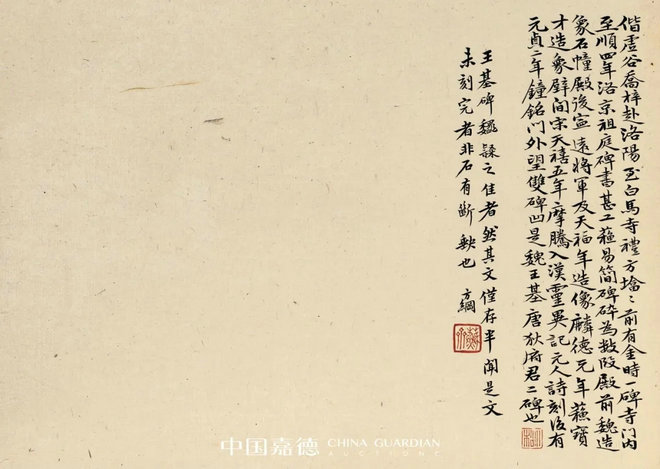 偕虛谷喬梓赴洛陽至白馬寺禮方墖〻前有金時一碑寺門內
至順四年洛京祖庭碑書甚工蘇易簡碑碎為數段殿前魏造
象石幢殿後宣遠將軍及天福年造像麟德元年蘇寶
才造象壁間宋天禧五年摩騰入漢靈異記元人詩刻後有
元貞二年鐘銘門外望雙碑凹是魏王基唐狄府君二碑也
王基碑魏隸之佳者然其文僅存半聞是文
未刻完者非石有斷缺也 方綱
中国嘉德 CHINA GUARDIAN
AUCTIONS